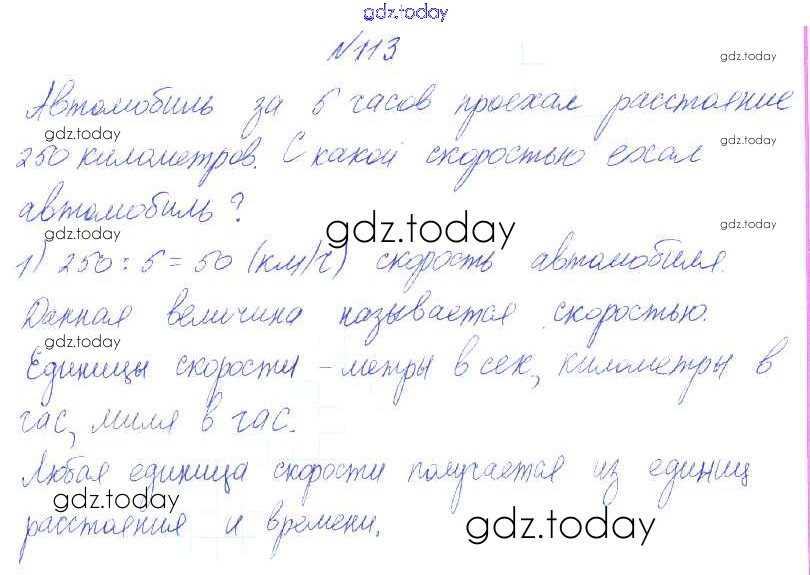 gdz.today
№113
gdz.today
Автомобиль за 5 часов проехал расстояние
gdz.today
gdz.today
250 километров. С какой скоростью ехал
автомобиль?
gdz.today
gdz.today
gdz.today
1) 250 : 5 = 50 (км/ч) скорость автомобиля.
Данная величина называется скоростью.
gdz.today
gdz.today
Единицы скорости – метры в сек, километры в
час, миля в час.
gdz.today
Любая единица скорости получается из единиц
gdz.today
gdz.today
расстояния и времени.